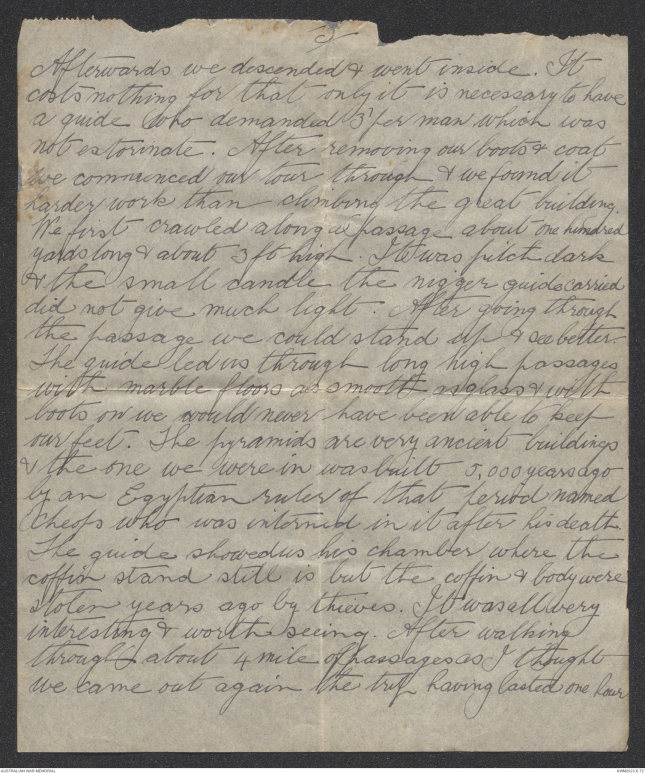 Afterwards we descended & went inside. It
costs nothing for that only it is necessary to have
a guide who demanded 3/ per man which was
not extorinate. After removing our boots & coat
we commenced our tour through & we found it
harder work than climbing the great building.
We first crawled along a passage about one hundred
yards long & about 3 ft high. It was pitch dark
& the small candle the nigger guide carried
did not give much light. After going through
the passage we could stand up & see better.
The guide led us through long high passages
with marble floors as smooth as glass & with
boots on we would never have been able to keep
our feet. The pyramids are very ancient buildings
& the one we were in was built 5,000 years ago
by an Egyptian ruler of that period named
Cheops who was interned in it after his death
The guide showed us his chamber where the
coffin stand still is but the coffin & body were
stolen years ago by thieves. It was all very
interesting & worth seeing. After walking
through about 4 mile of passages as I thought
we came out again the trip having lasted one hour
AUSTRALIAN WAR MEMORIAL
AWM2023.8.12